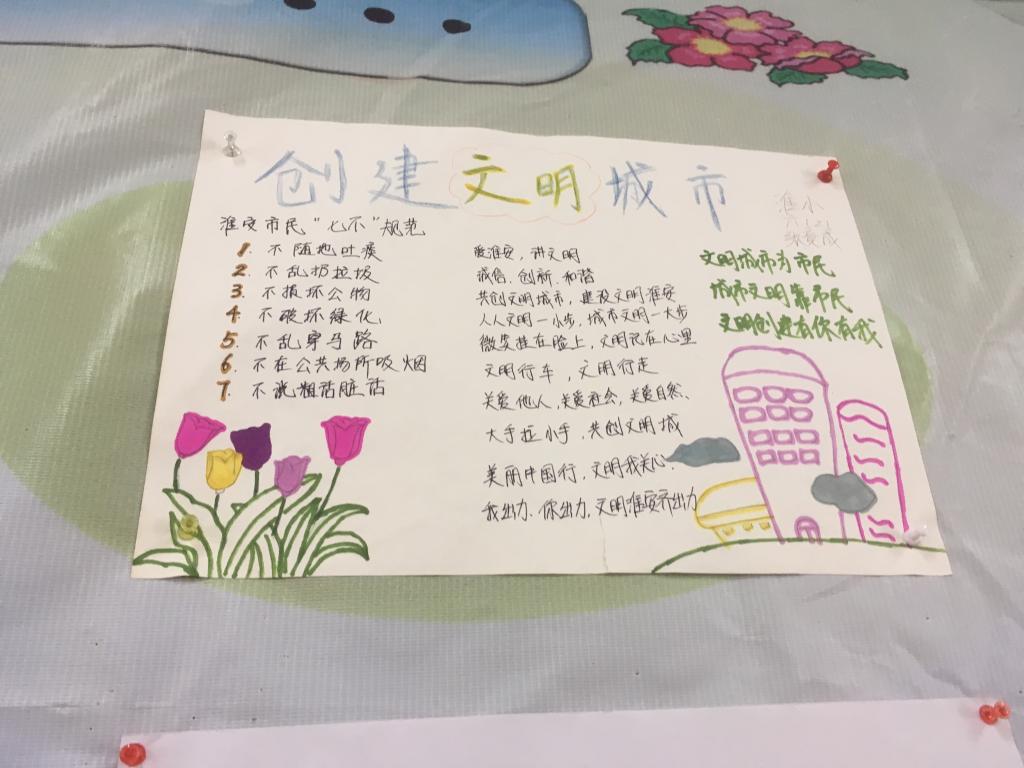 创建文明城市
淮安市民"七不"规范
1. 不随地吐痰
2. 不乱扔垃圾
3. 不损坏公物
4. 不破坏绿化
5. 不乱穿马路
6. 不在公共场所吸烟
7. 不说粗话脏话
爱淮安，讲文明
诚信、创新、和谐
共创文明城市，建设文明淮安
人人文明一小步，城市文明一大步
微笑挂在脸上，文明记在心里
文明行车，文明行走
关爱他人，关爱社会，关爱自然、
大手拉小手，共创文明城
美丽中国行，文明我关心.
我出力、你出力，文明淮安齐出力
淮小
文明城市为市民
城市文明靠市民
文明创建有你有我